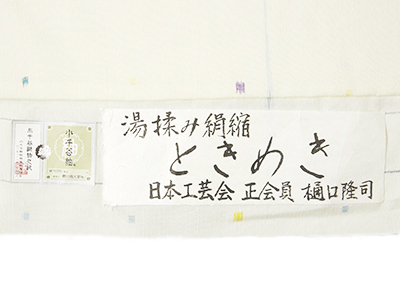 湯揉み絹縮
ときめき
日本工芸会 正会員 樋口隆司
小千谷紬